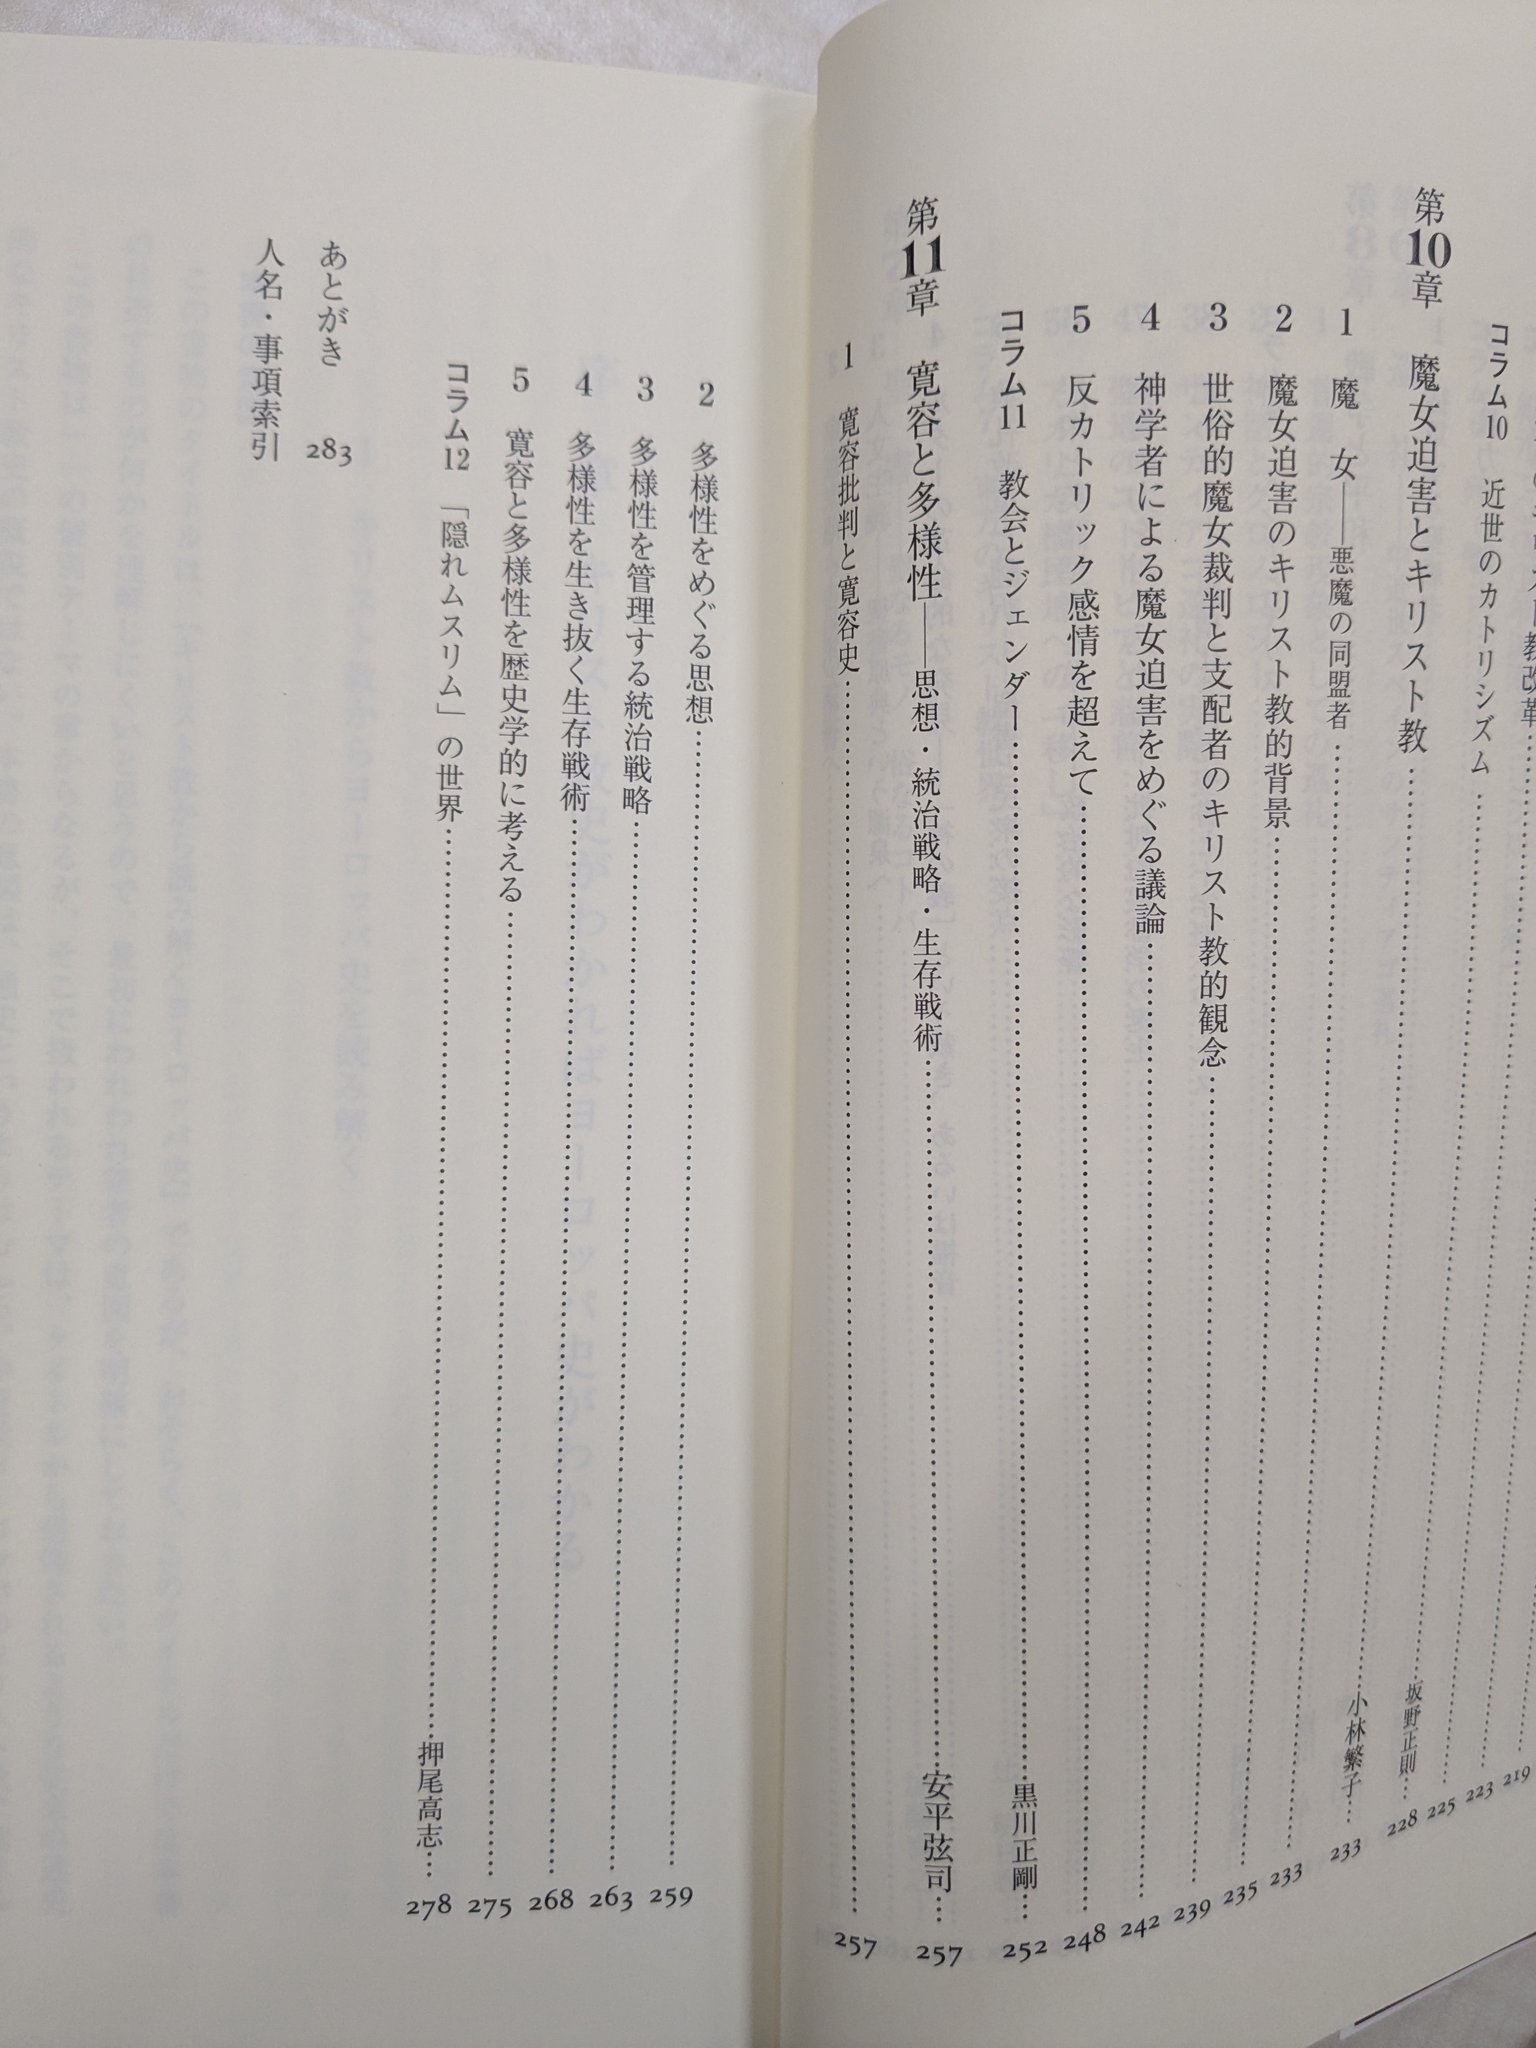 219
223
教改革……225
コラム10 近世のカトリシズム……坂野正則…228
第10章 魔女迫害とキリスト教……小林繁子…233
1 魔 女――悪魔の同盟者……233
2 魔女迫害のキリスト教的背景……235
3 世俗的魔女裁判と支配者のキリスト教的観念……239
4 神学者による魔女迫害をめぐる議論……242
5 反カトリック感情を超えて……248
コラム11 教会とジェンダー……黒川正剛…252
第11章 寛容と多様性――思想・統治戦略・生存戦術……安平弦司…257
1 寛容批判と寛容史……257
2 多様性をめぐる思想……259
3 多様性を管理する統治戦略……263
4 多様性を生き抜く生存戦術……268
5 寛容と多様性を歴史学的に考える……275
コラム12 「隠れムスリム」の世界……押尾高志…278
あとがき 283
人名・事項索引